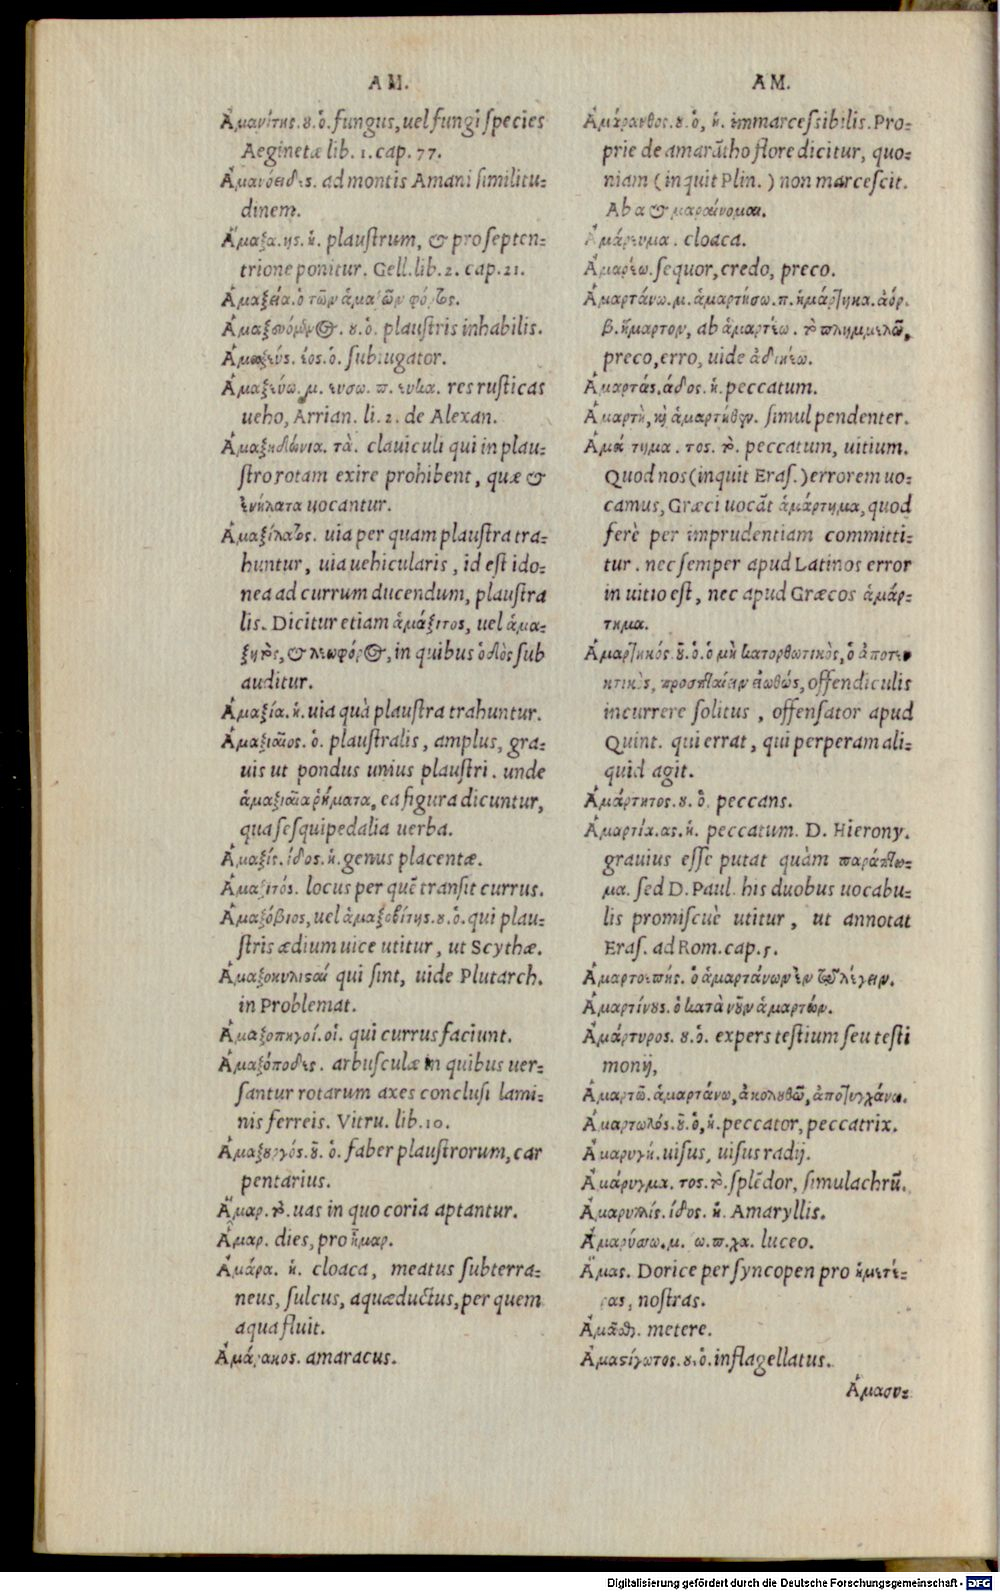 AM.
Ἀμανίτης. ου. ὁ. fungus, uel fungi species
Aeginetæ lib. 1. cap. 77.
Ἀμανόειδες. ad montis Amani similitu-
dinem.
Ἅμαξα. ης. ἡ. plaustrum, & pro septen-
trione ponitur. Gell. lib. 2. cap. 21.
Ἁμαξεία. ὁ τῶν ἁμαξῶν φόρτος.
ου. ὁ. plaustris inhabilis.
Ἁμαξεύς. έος. ὁ. subiugator.
Ἁμαξεύω. μ. ευσω. π. ευκα. res rusticas
ueho, Arrian. li. 2. de Alexan.
Ἁμαξηδώνια. τὰ. clauiculi qui in plau-
stro rotam exire prohibent, quæ &
ἐνήλατα uocantur.
Ἁμαξίλατος. uia per quam plaustra tra-
huntur, uia uehicularis, id est ido-
nea ad currum ducendum, plaustra
lis. Dicitur etiam ἁμάξιτος, uel ἁμα-
ξητὸς, & λεωφόρος, in quibus ὁδὸς sub
auditur.
Ἁμαξία. ἡ. uia quà plaustra trahuntur.
Ἁμαξιαῖος. ὁ. plaustralis, amplus, gra-
uis ut pondus unius plaustri. unde
ἁμαξιαῖα ῥήματα, ea figura dicuntur,
qua sesquipedalia uerba.
Ἁμαξίς. ίδος. ἡ. genus placentæ.
Ἁμαξιτός. locus per quē transit currus.
Ἁμαξόβιος, uel ἁμαξοβίτης. ου. ὁ. qui plau-
stris ædium uice utitur, ut Scythæ.
Ἁμαξοκυλισαί qui sint, uide Plutarch.
in Problemat.
Ἁμαξοπηγοί. οἱ. qui currus faciunt.
Ἁμαξόποδες. arbusculæ in quibus uer-
santur rotarum axes conclusi lami-
nis ferreis. Vitru. lib. 10.
Ἁμαξουργός. οῦ. ὁ. faber plaustrorum, car
pentarius.
Ἄμαρ. τὸ. uas in quo coria aptantur.
Ἆμαρ. dies, pro ἦμαρ.
Ἀμάρα. ἡ. cloaca, meatus subterra-
neus, sulcus, aquæductus, per quem
aqua fluit.
Ἀμάρακος. amaracus.
AM.
Ἀμάρανθος. ου. ὁ, ἡ. immarcessibilis. Pro-
prie de amarātho flore dicitur, quo-
niam (inquit Plin.) non marcescit.
Ab α & μαραίνομαι.
Ἀμάρευμα. cloaca.
Ἁμαρτέω. sequor, credo, preco.
Ἁμαρτάνω. μ. ἁμαρτήσω. π. ἡμάρτηκα. ἀόρ.
β. ἥμαρτον, ab ἁμαρτέω. τὸ πλημμελῶ,
preco, erro, uide ἀδικέω.
Ἁμαρτάς. άδος. ἡ. peccatum.
Ἁμαρτὴ, καὶ ἁμαρτήδην. simul pendenter.
Ἁμάρτημα. τος. τὸ. peccatum, uitium.
Quod nos (inquit Eras.) errorem uo-
camus, Græci uocāt ἁμάρτημα, quod
ferè per imprudentiam committi-
tur. nec semper apud Latinos error
in uitio est, nec apud Græcos ἁμάρ-
τημα.
Ἁμαρτικός. οῦ. ὁ. ὁ μὴ κατορθωτικὸς, ὁ ἀποτευ
κτικὸς, προσπταίειν εἰωθώς, offendiculis
incurrere solitus, offensator apud
Quint. qui errat, qui perperam ali-
quid agit.
Ἁμάρτητος. ου. ὁ. peccans.
Ἁμαρτία. ας. ἡ. peccatum. D. Hierony.
grauius esse putat quàm παράπτω-
μα. sed D. Paul. his duobus uocabu-
lis promiscuè utitur, ut annotat
Eras. ad Rom. cap. 5.
Ἁμαρτοεπής. ὁ ἁμαρτάνων ἐν τῷ λέγειν.
Ἁμαρτίνους. ὁ κατὰ νοῦν ἁμαρτών.
Ἀμάρτυρος. ου. ὁ. expers testium seu testi
monij,
Ἁμαρτῶ. ἁμαρτάνω, ἀκολουθῶ, ἀποτυγχάνω.
Ἁμαρτωλός. οῦ. ὁ, ἡ. peccator, peccatrix.
Ἀμαρυγή. uisus, uisus radij.
Ἀμάρυγμα. τος. τὸ. splēdor, simulachrū.
Ἀμαρυλλίς. ίδος. ἡ. Amaryllis.
Ἀμαρύσσω. μ. ξω. π. χα. luceo.
Ἅμας. Dorice per syncopen pro ἡμετέ-
ρας, nostras.
metere.
Ἀμαστίγωτος. ου. ὁ. inflagellatus.
Ἀμασυ-
Digitalisierung gefördert durch die Deutsche Forschungsgemeinschaft - DFG